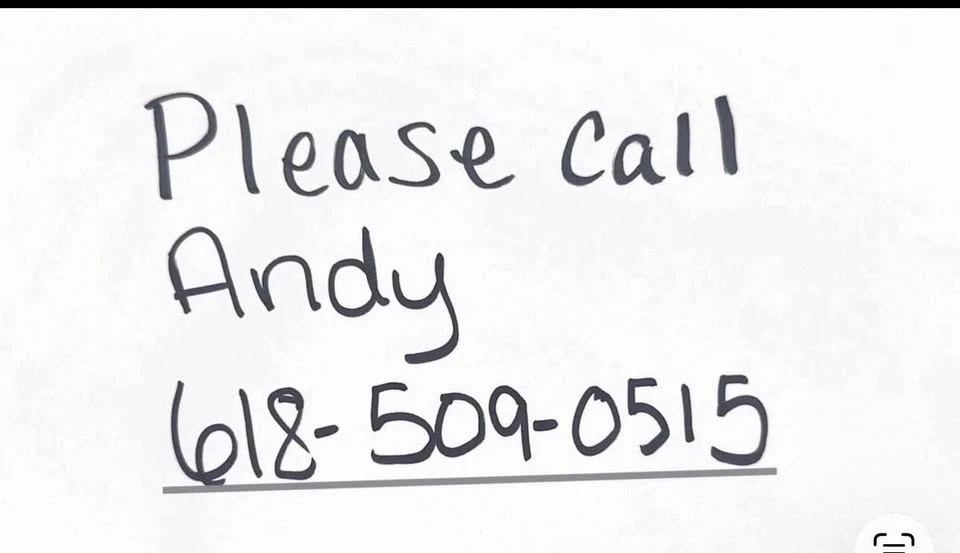 Please call
Andy
618-509-0515